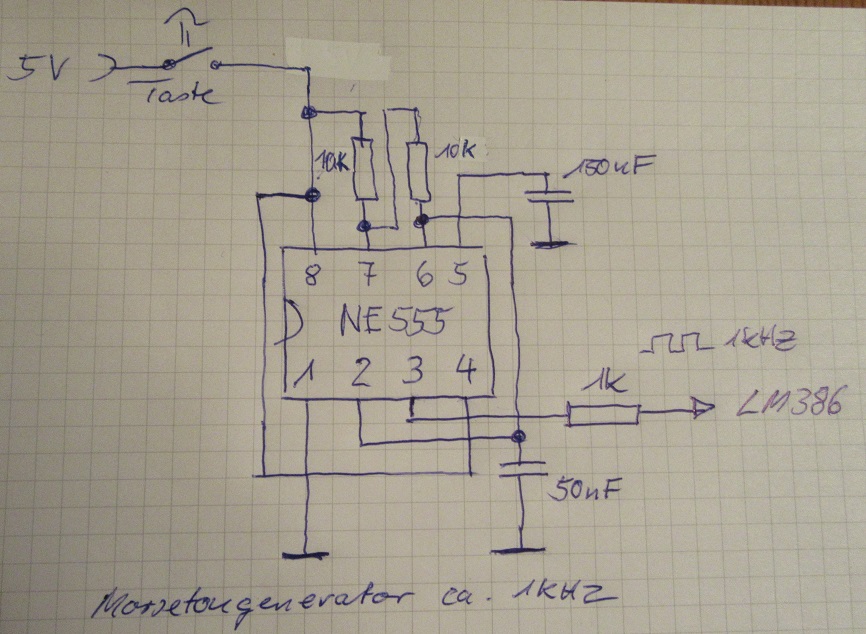 5V
Taste
10K
10K
150nF
8 7 6 5
NE555
1 2 3 4
1kHz
1K
LM386
50nF
Morsetongenerator ca. 1KHz